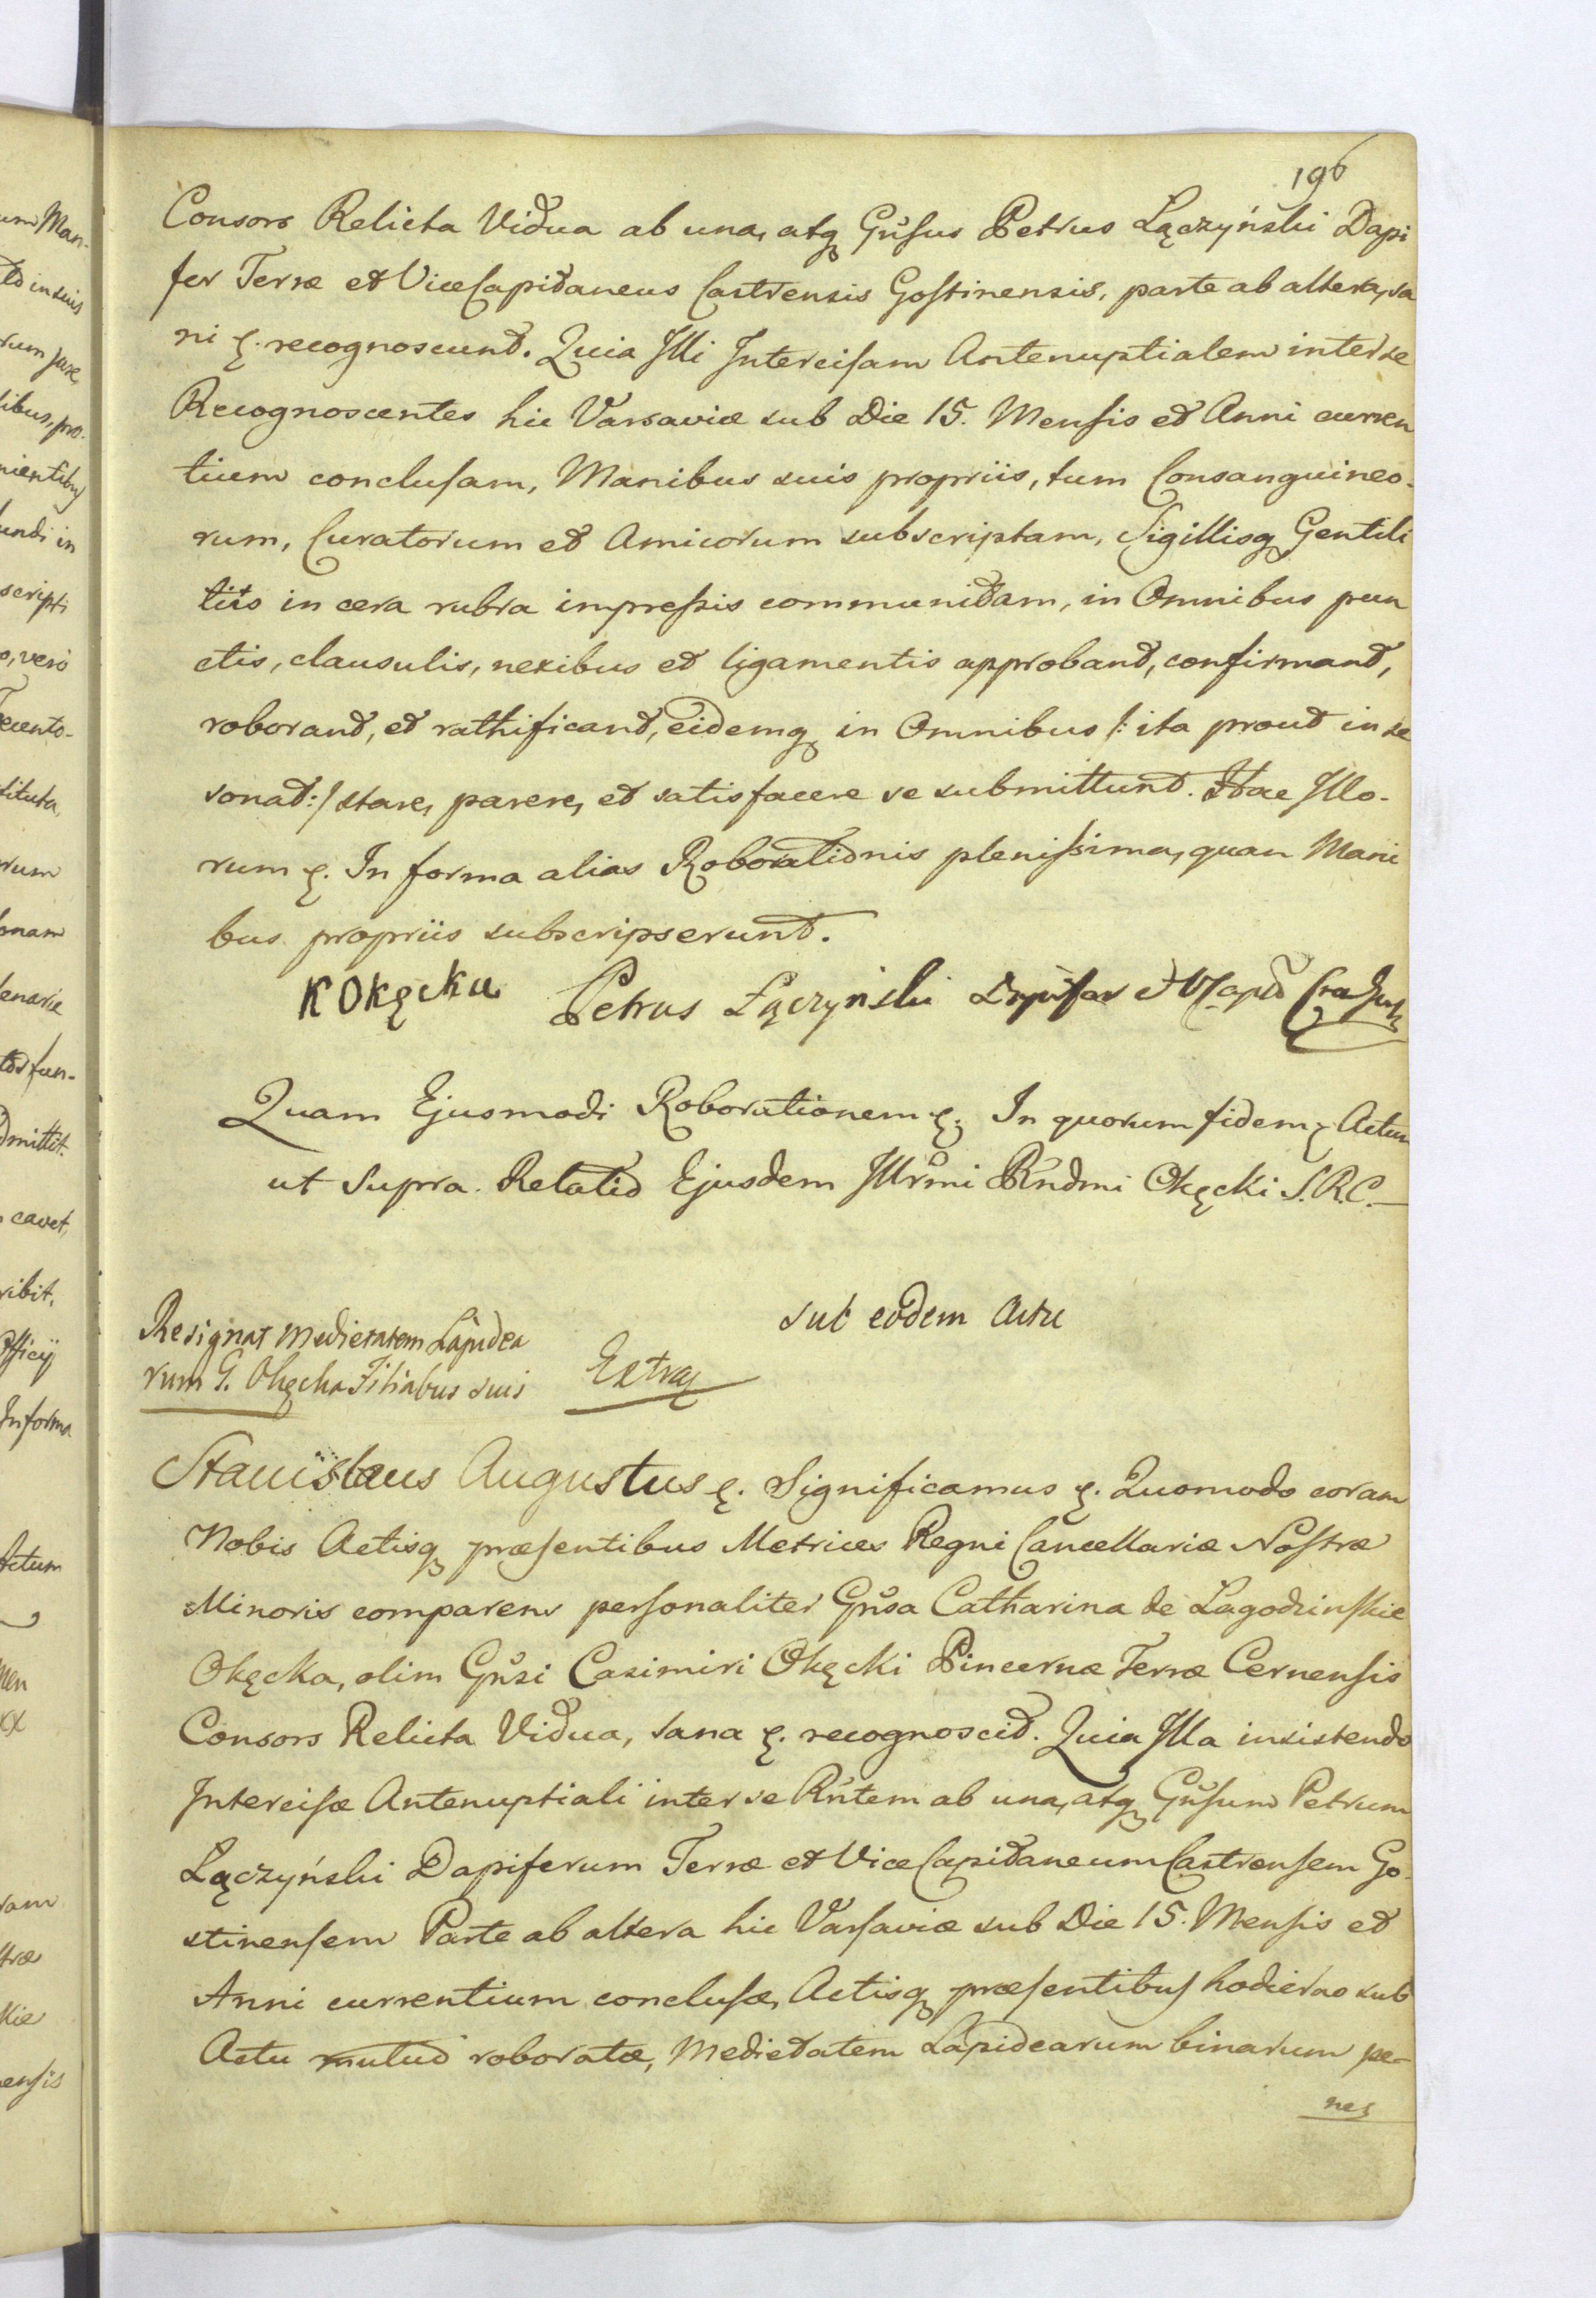 196
Consors Relicta Vidua ab una, atq Gnsus Petrus Łączyński Dapi
fer Terræ et ViceCapitaneus Castrensis Gostinensis, parte ab altera, sa
ni &. recognoscunt. Quia Illi Intercisam Antenuptialem inter se
Recognoscentes hic Varsaviæ sub Die 15. Mensis et Anni curren
tium conclusam, Manibus suis propriis, tum Consanguineo-
rum, Curatorum et Amicorum subscriptam, Sigillisq Gentili
tiis in cera rubra impressis communitam, in Omnibus pun
ctis, clausulis, nexibus et ligamentis approbant, confirmant,
roborant, et rathificant, eidemq in Omnibus /: ita prout in se
sonat :/ stare, parere, et satisfacere se submittunt. Hac Illo-
rum &. In forma alias Roborationis plenissima, quam Mani
bus propriis subscripserunt.
K Okęcka Petrus Łączyński Dapifer et
Quam Ejusmodi Roborationem &. In quorum fidem & Actum
ut Supra. Relatio Ejusdem Illrmi Rndmi Okęcki S.R.C.
sub eodem Actu
Resignat Medietatem Lapidea
rum G. Okęcka Filiabus suis
Extrax
Stanislaus Augustus &. Significamus &. Quomodo coram
Nobis Actisq præsentibus Metrices Regni Cancellariæ Nostræ
Minoris comparens personaliter Gnsa Catharina de Lagodzinskie
Okęcka, olim Gnsi Casimiri Okęcki Pincernæ Terræ Cernensis
Consors Relicta Vidua, sana &. recognoscit. Quia Illa insistendo
Intercisæ Antenuptiali inter se Rntem ab una, atq Gnsum Petrum
Łączyński Dapiferum Terræ et ViceCapitaneum Castrensem Go-
stinensem Parte ab altera hic Varsaviæ sub Die 15. Mensis et
Anni currentium conclusæ, Actisq præsentibus hodierno sub
Actu mutuo roboratæ, Medietatem Lapidearum binarum pe-
nes